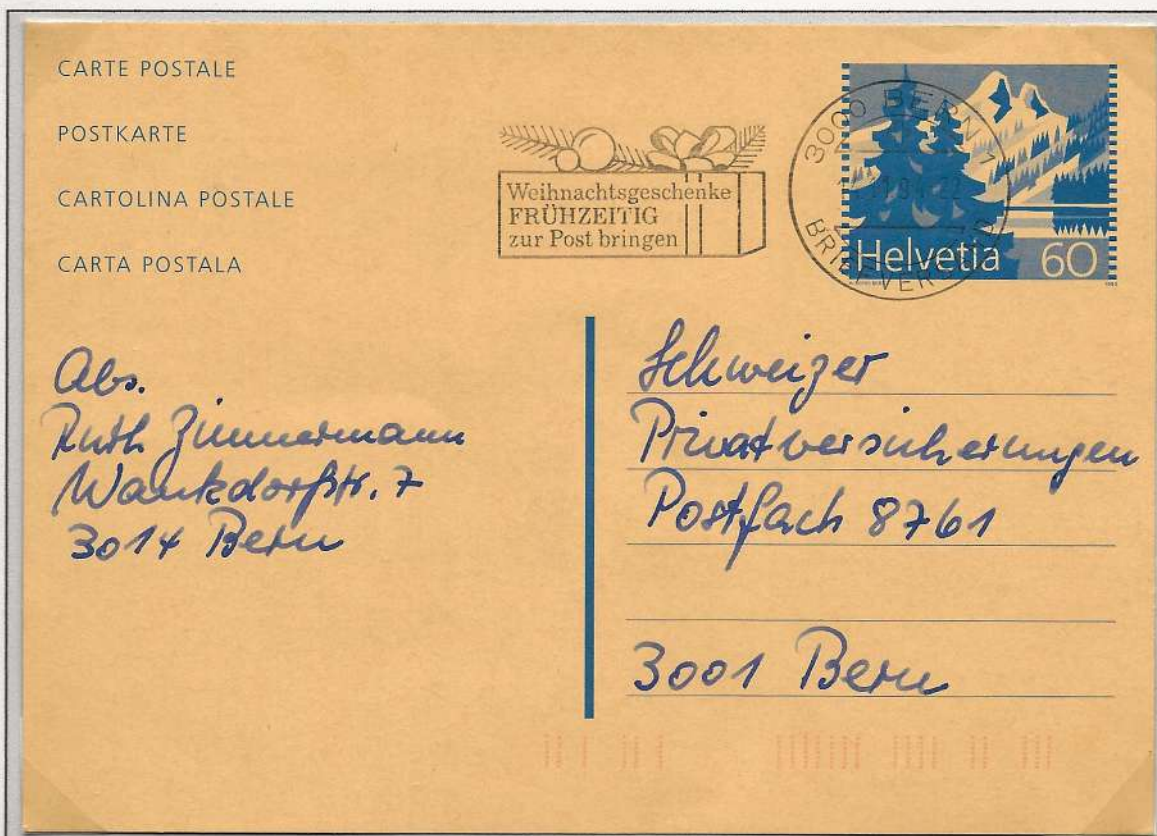 CARTE POSTALE
POSTKARTE
CARTOLINA POSTALE
CARTA POSTALA
Weihnachtsgeschenke
FRÜHZEITIG
zur Post bringen
3000 BERN 1
BRIEFVERSAND
Helvetia 60
Abs.
Ruth Zimmermann
Wankdorfstr. 7
3014 Bern
Schweizer
Privatversicherungen
Postfach 8761
3001 Bern